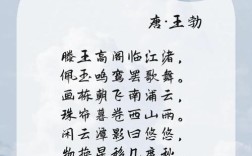 唐·王勃
滕王高阁临江渚，
佩玉鸣鸾罢歌舞。
画栋朝飞南浦云，
珠帘暮卷西山雨。
闲云潭影日悠悠，
物换星移几度秋